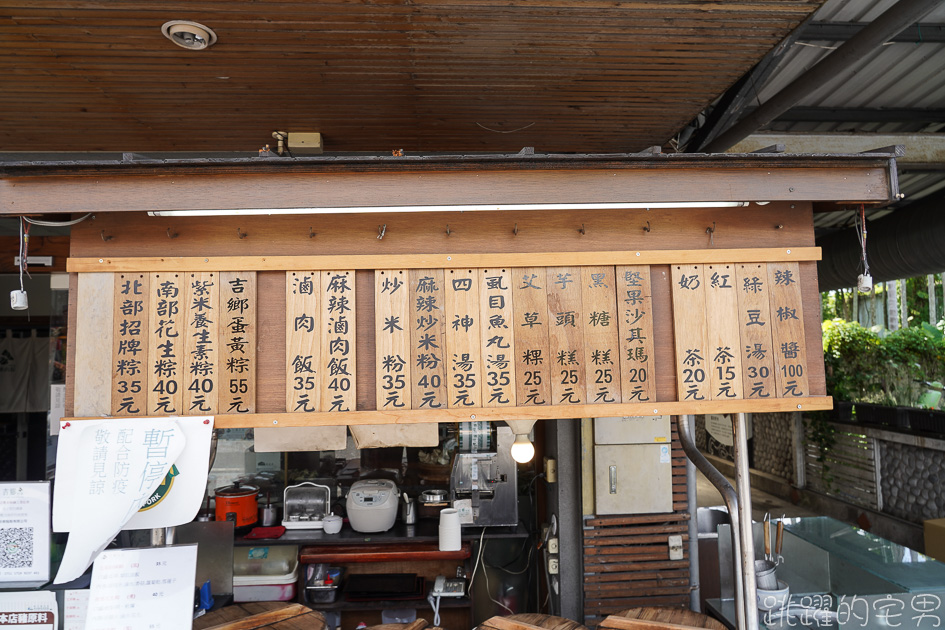 北部招牌粽35元
南部花生粽40元
紫米養生素粽40元
吉鄉蛋黃粽55元
滷肉飯35元
麻辣滷肉飯40元
炒米粉35元
麻辣炒米粉40元
四神湯35元
虱目魚丸湯35元
艾草粿25元
芋頭糕25元
黑糖糕25元
堅果沙其瑪20元
奶茶20元
紅茶15元
綠豆湯30元
辣椒醬100元
暫停
配合防疫
敬請見諒
跳躍的宅男